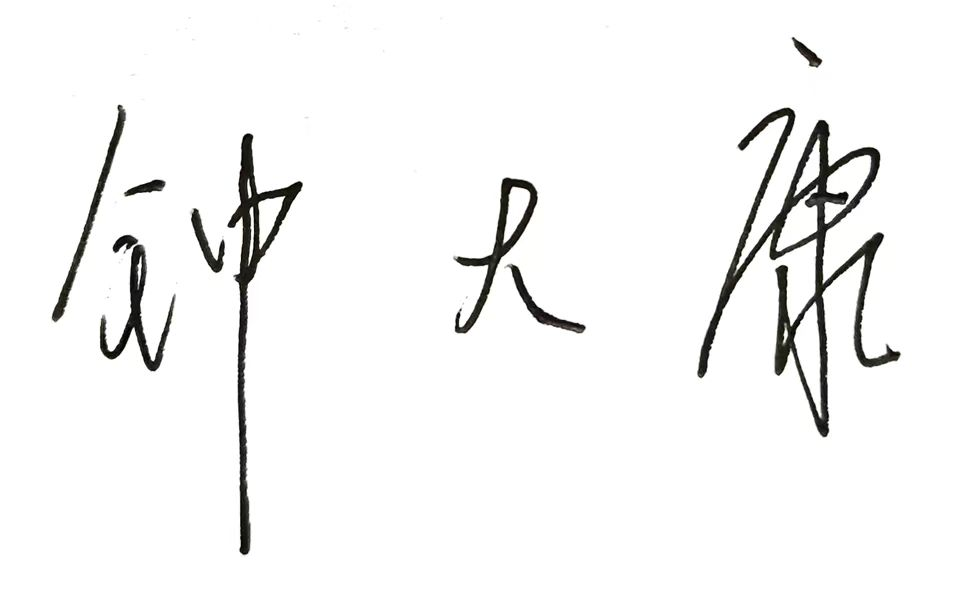 钟大康